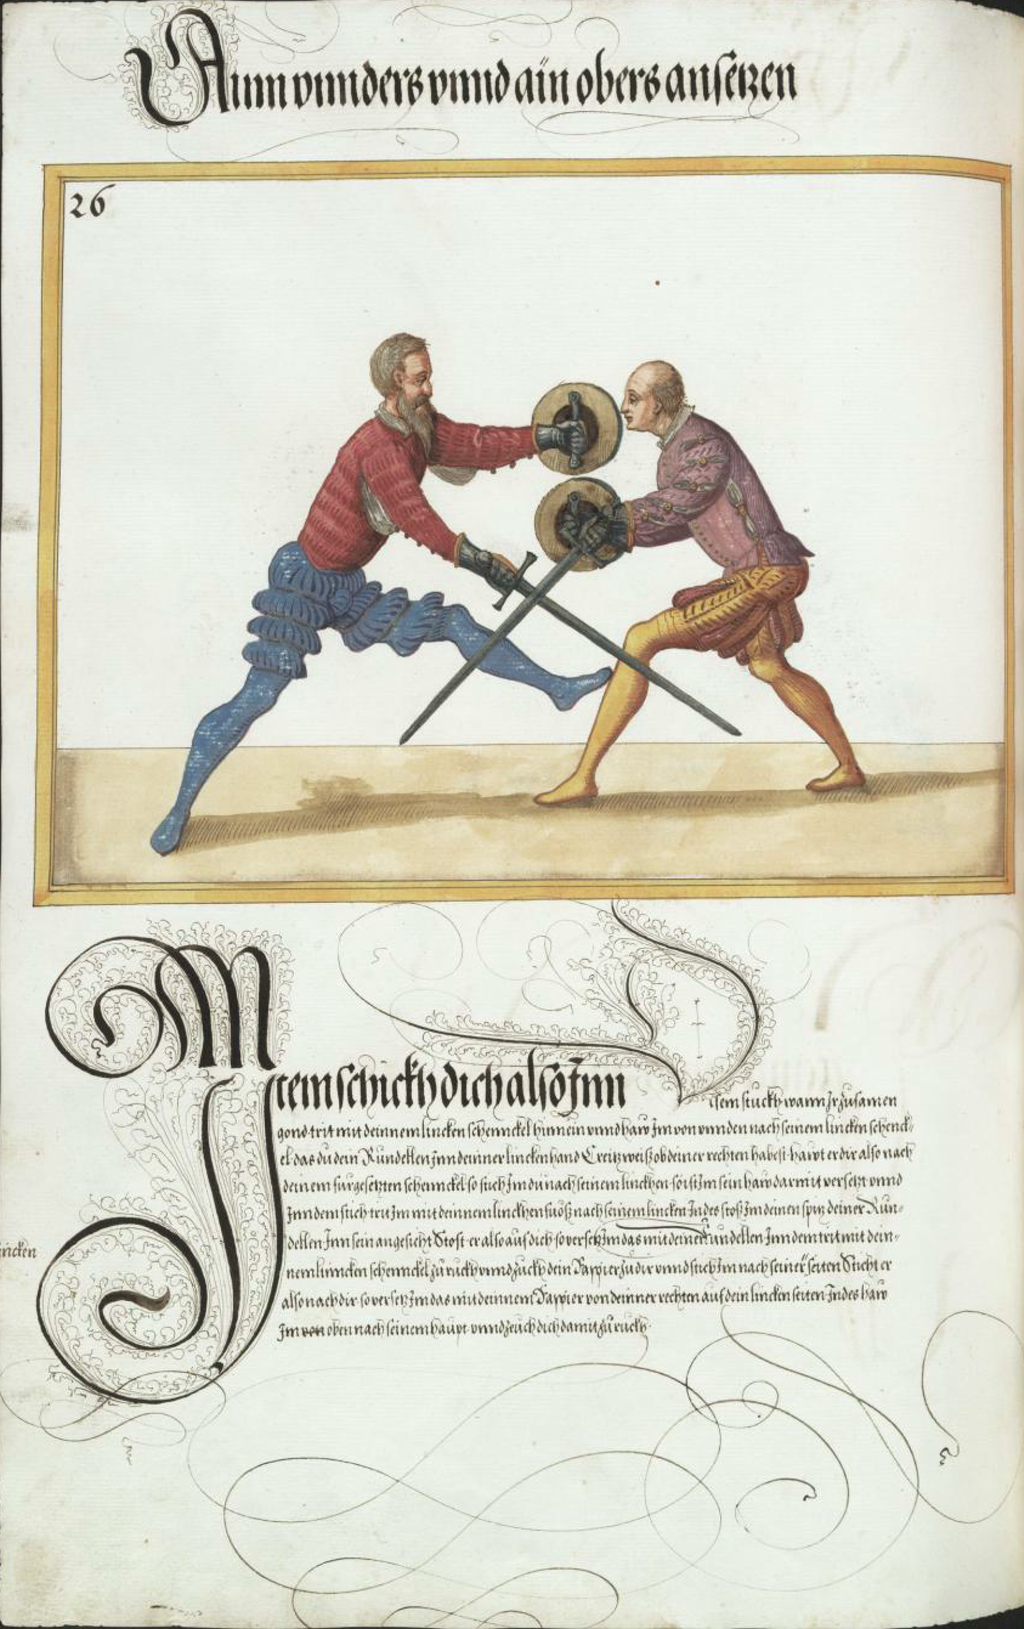 Ainn vnnders vnnd ain obers ansetzen
26
Item schickh dich also Inn
disem stuckh wann Ir zusamen
gond trit mit deinnem lincken schennckel hinnein vnnd haw Im von vnnden nach seinem lincken schenck-
el das du dein Rundellen Inn deinner lincken hand Creitzweiß ob deiner rechten habest hawt er dir also nach
deinem fürgesetzten schennckel so stich Im du nach seinem linckhen so ist Im sein haw darmit versetzt vnnd
Inn dem stich trit Im mit deinnem linckhen fuoß nach seinem lincken Indes stoß Im deinen spitz deiner Run-
dellen Inn sein angesicht Stost er also auf dich so versetz Im das mit deiner Rundellen Inn dem trit mit dein-
lincken
nem linncken schennckel zu ruckh vnnd zuckh dein Rappier zu dir vnnd stich Im nach seiner seiten Sticht er
also nach dir so versetz Im das mit deinnem Rappier von deinner rechten auf dein lincken seiten Indes haw
Im von oben nach seinem haupt vnnd zeuch dich damit zu ruckh